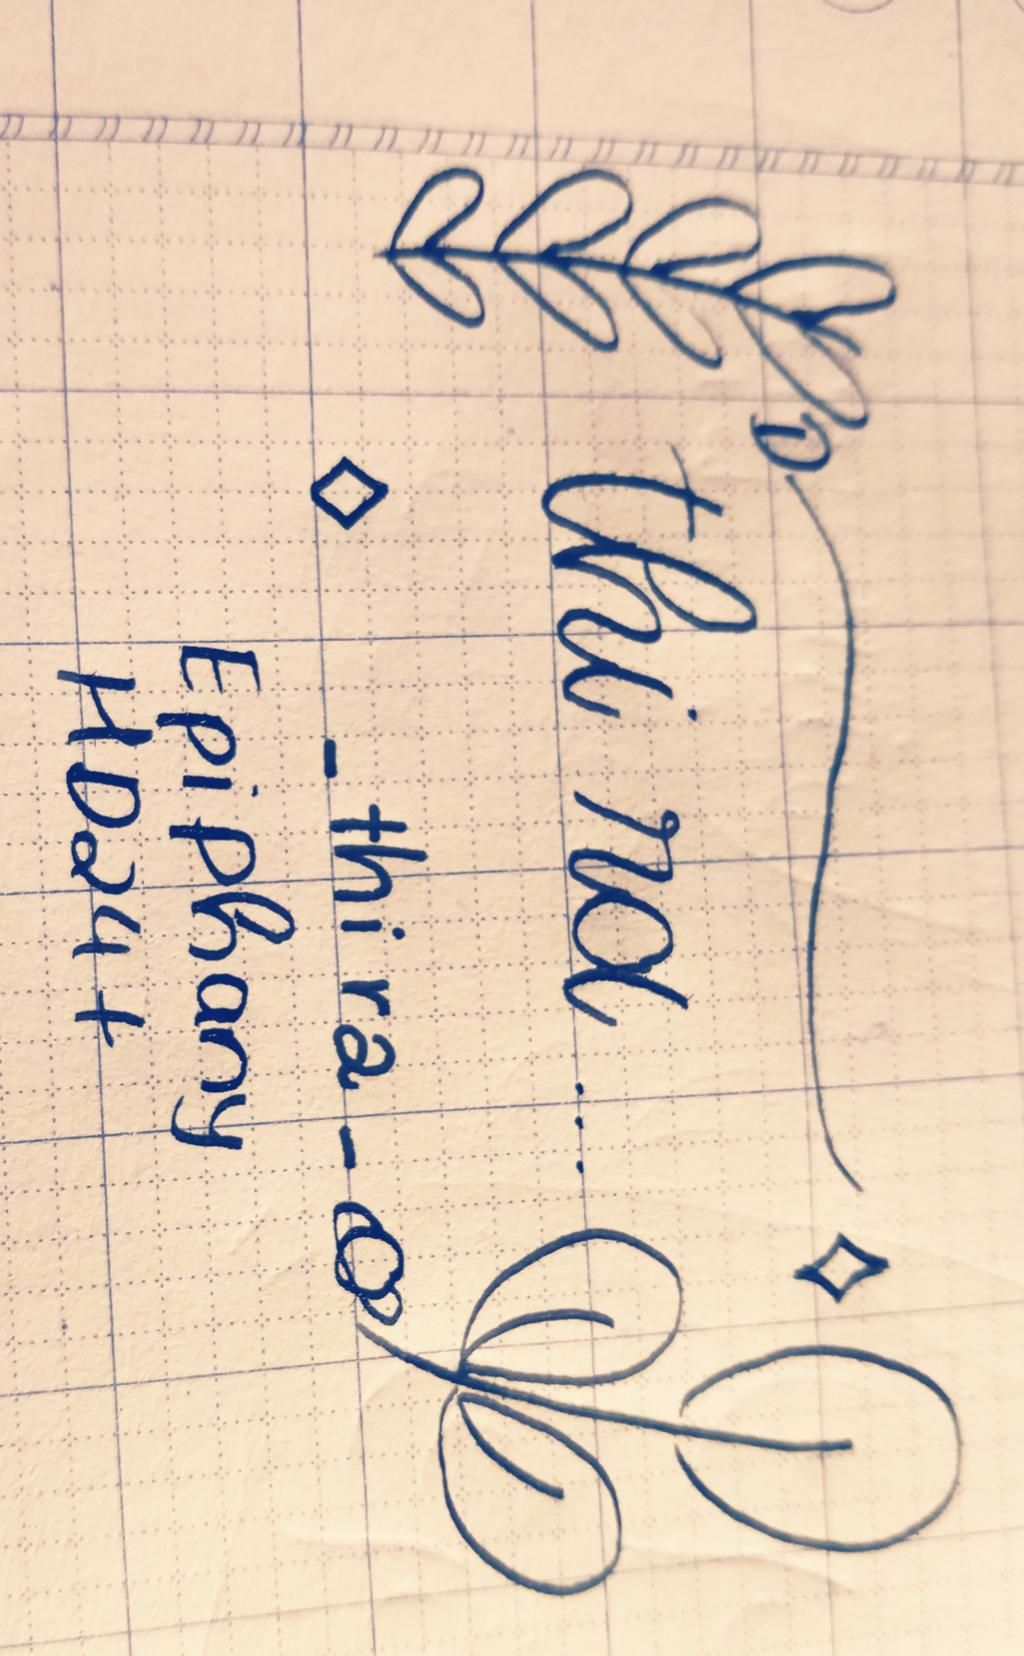 thi ra ...
- thira -
Epiphany
HD24+